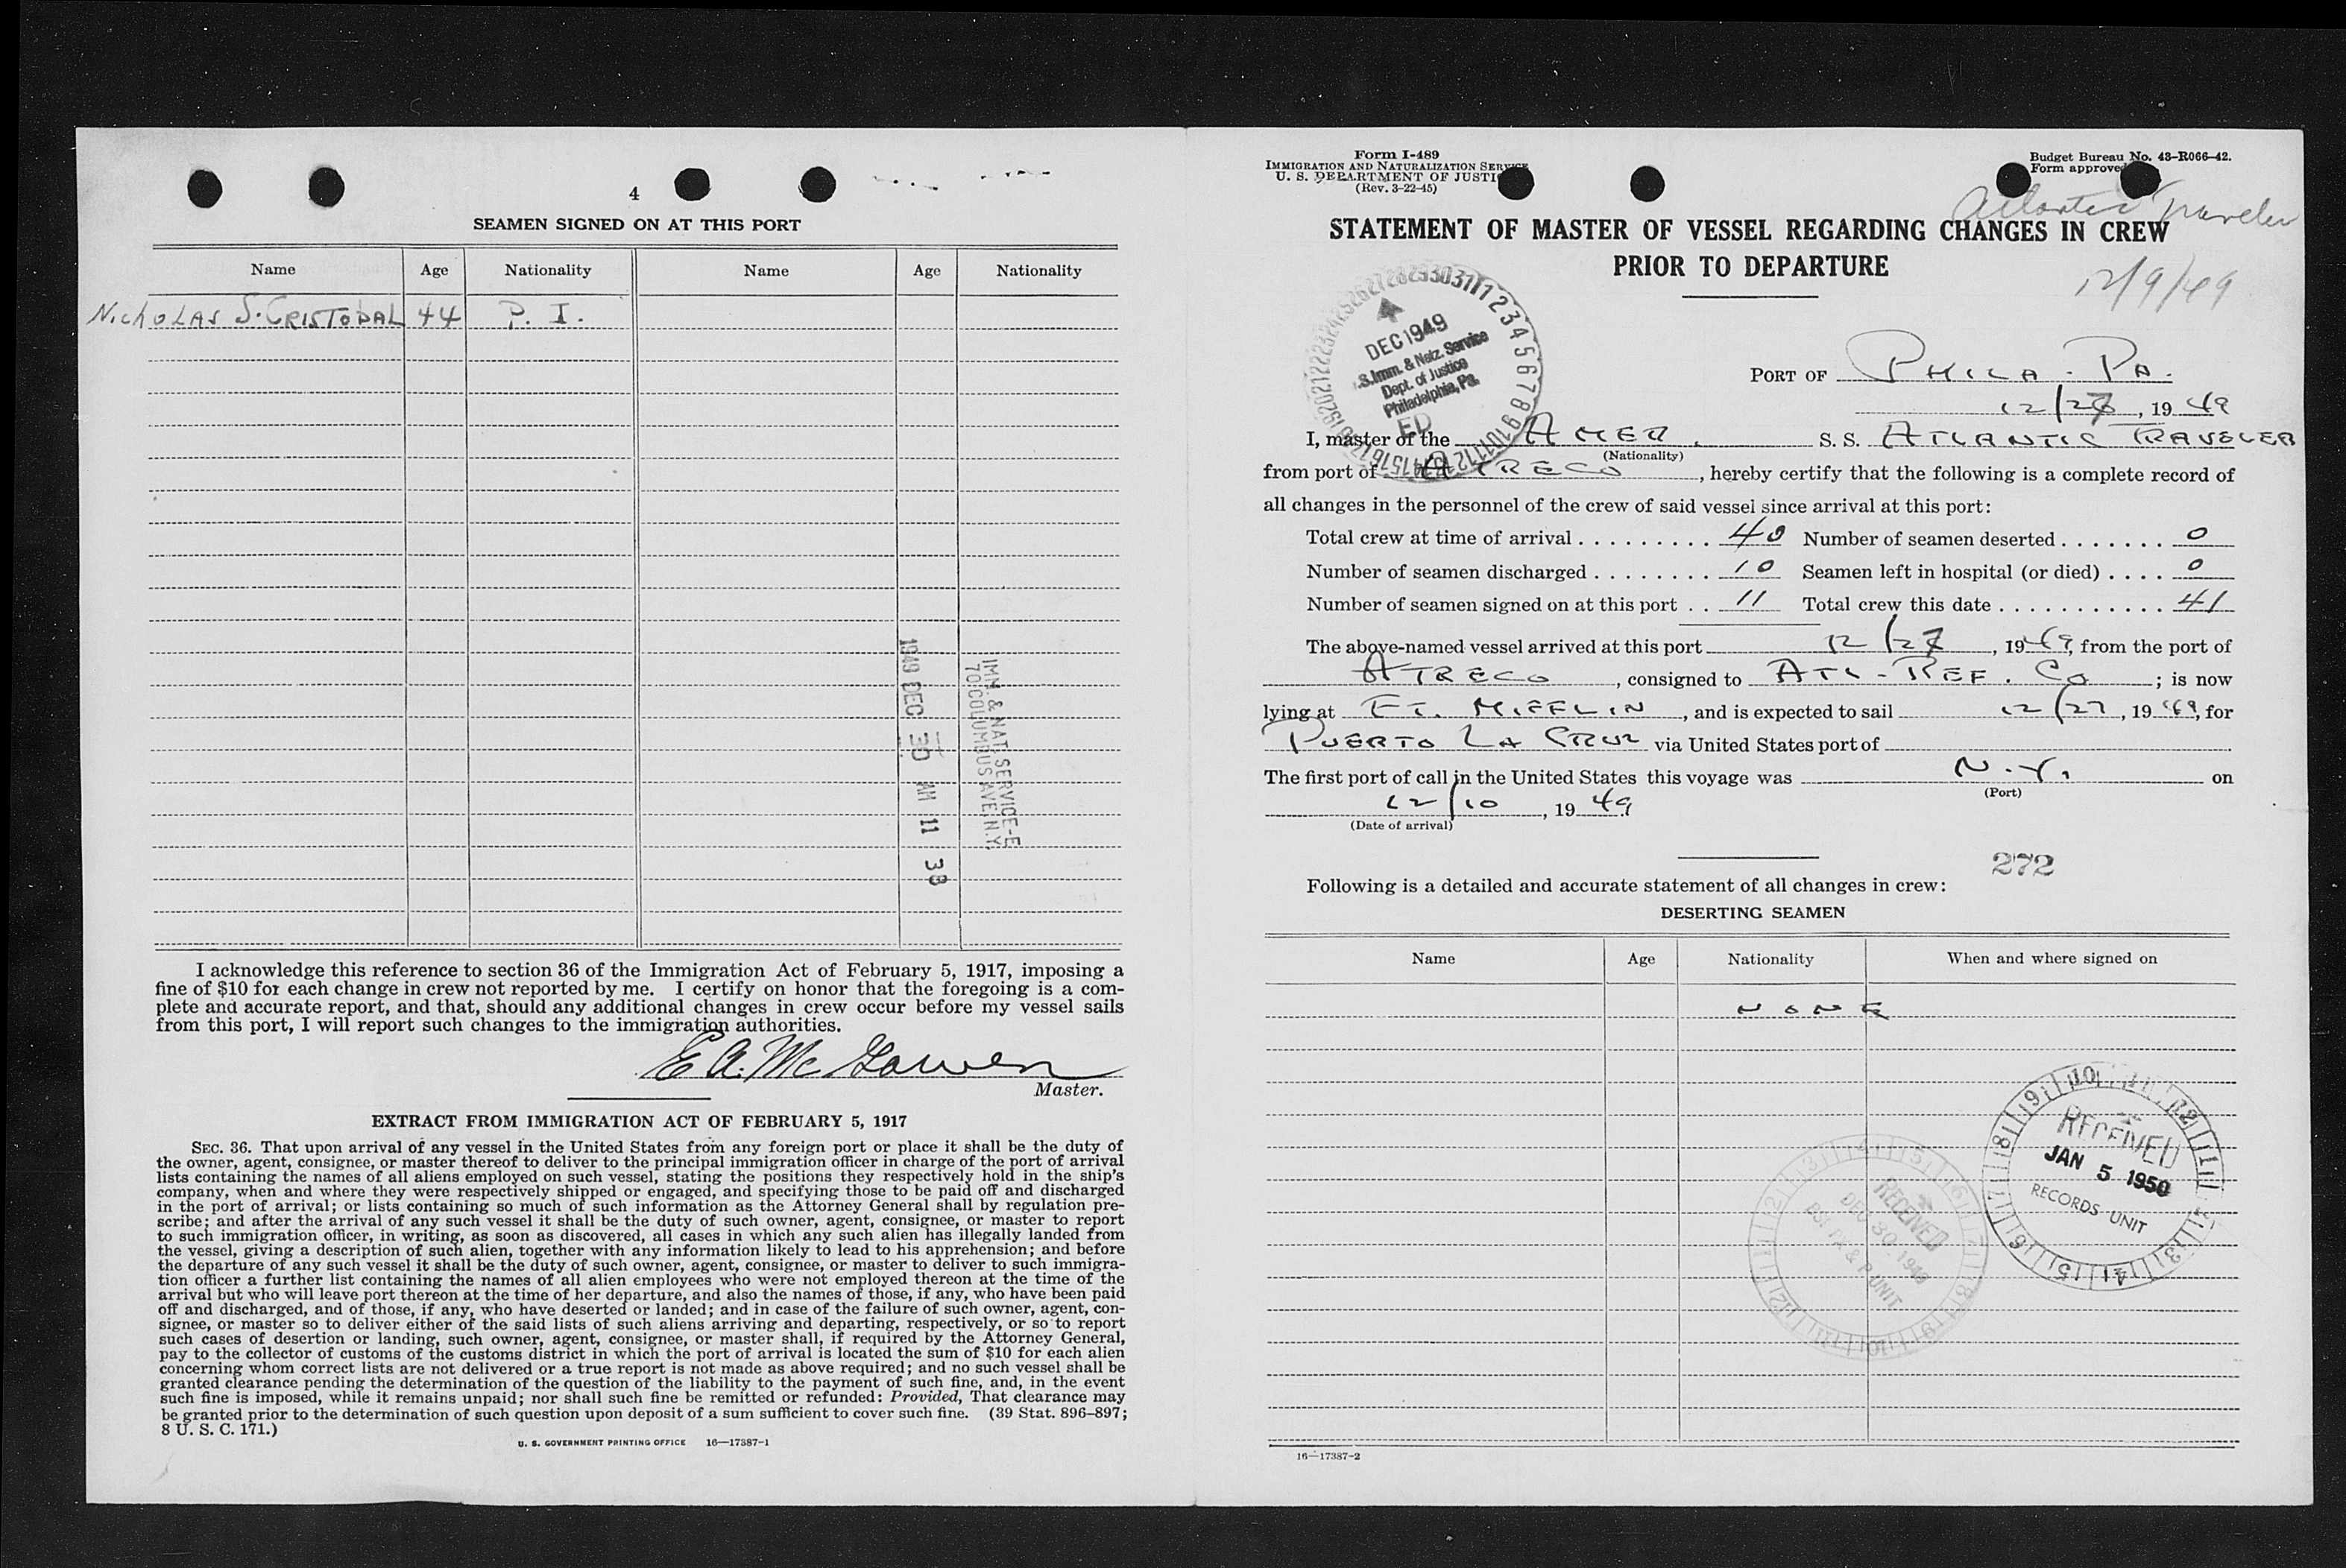 4
SEAMEN SIGNED ON AT THIS PORT
Name Age Nationality Name Age Nationality
NICHOLAS S. CRISTOBAL 44 P. I.
1949 DEC 30 AM 11 38
IMM. & NAT. SERVICE-E
70 COLUMBUS AVE N.Y.
I acknowledge this reference to section 36 of the Immigration Act of February 5, 1917, imposing a
fine of $10 for each change in crew not reported by me. I certify on honor that the foregoing is a com-
plete and accurate report, and that, should any additional changes in crew occur before my vessel sails
from this port, I will report such changes to the immigration authorities.
E. A. McGowen
Master.
EXTRACT FROM IMMIGRATION ACT OF FEBRUARY 5, 1917
SEC. 36. That upon arrival of any vessel in the United States from any foreign port or place it shall be the duty of
the owner, agent, consignee, or master thereof to deliver to the principal immigration officer in charge of the port of arrival
lists containing the names of all aliens employed on such vessel, stating the positions they respectively hold in the ship's
company, when and where they were respectively shipped or engaged, and specifying those to be paid off and discharged
in the port of arrival; or lists containing so much of such information as the Attorney General shall by regulation pre-
scribe; and after the arrival of any such vessel it shall be the duty of such owner, agent, consignee, or master to report
to such immigration officer, in writing, as soon as discovered, all cases in which any such alien has illegally landed from
the vessel, giving a description of such alien, together with any information likely to lead to his apprehension; and before
the departure of any such vessel it shall be the duty of such owner, agent, consignee, or master to deliver to such immigra-
tion officer a further list containing the names of all alien employees who were not employed thereon at the time of the
arrival but who will leave port thereon at the time of her departure, and also the names of those, if any, who have been paid
off and discharged, and of those, if any, who have deserted or landed; and in case of the failure of such owner, agent, con-
signee, or master so to deliver either of the said lists of such aliens arriving and departing, respectively, or so to report
such cases of desertion or landing, such owner, agent, consignee, or master shall, if required by the Attorney General,
pay to the collector of customs of the customs district in which the port of arrival is located the sum of $10 for each alien
concerning whom correct lists are not delivered or a true report is not made as above required; and no such vessel shall be
granted clearance pending the determination of the question of the liability to the payment of such fine, and, in the event
such fine is imposed, while it remains unpaid; nor shall such fine be remitted or refunded: Provided, That clearance may
be granted prior to the determination of such question upon deposit of a sum sufficient to cover such fine. (39 Stat. 896–897;
8 U. S. C. 171.)
U. S. GOVERNMENT PRINTING OFFICE 16—17387-1
Form I-489
IMMIGRATION AND NATURALIZATION SERVICE
U. S. DEPARTMENT OF JUSTI
(Rev. 3-22-45)
Budget Bureau No. 43-R066-42.
Form approve
Atlantic Traveler
STATEMENT OF MASTER OF VESSEL REGARDING CHANGES IN CREW
PRIOR TO DEPARTURE
12/9/49
DEC 1949
.S.Imm. & Natz. Service
Dept. of Justice
Philadelphia, Pa.
ED
PORT OF PHILA. PA.
12/27, 19 49
I, master of the AMER. S. S. ATLANTIC TRAVELER
(Nationality)
from port of ATRECO, hereby certify that the following is a complete record of
all changes in the personnel of the crew of said vessel since arrival at this port:
Total crew at time of arrival . . . . . . . . . 40 Number of seamen deserted . . . . . . . 0
Number of seamen discharged . . . . . . . . 10 Seamen left in hospital (or died) . . . . 0
Number of seamen signed on at this port . . 11 Total crew this date . . . . . . . . . . . 41
The above-named vessel arrived at this port 12/27, 1949, from the port of
ATRECO, consigned to ATL. REF. CO; is now
lying at FT. MIFFLIN, and is expected to sail 12/27, 19 49, for
PUERTO LA CRUZ via United States port of
The first port of call in the United States this voyage was N.Y. on
(Port)
12/10, 19 49
(Date of arrival)
272
Following is a detailed and accurate statement of all changes in crew:
DESERTING SEAMEN
Name Age Nationality When and where signed on
NONE
RECEIVED
JAN 5 1950
RECORDS UNIT
RECEIVED
DEC 30 1949
& P UNIT
16—17387-2